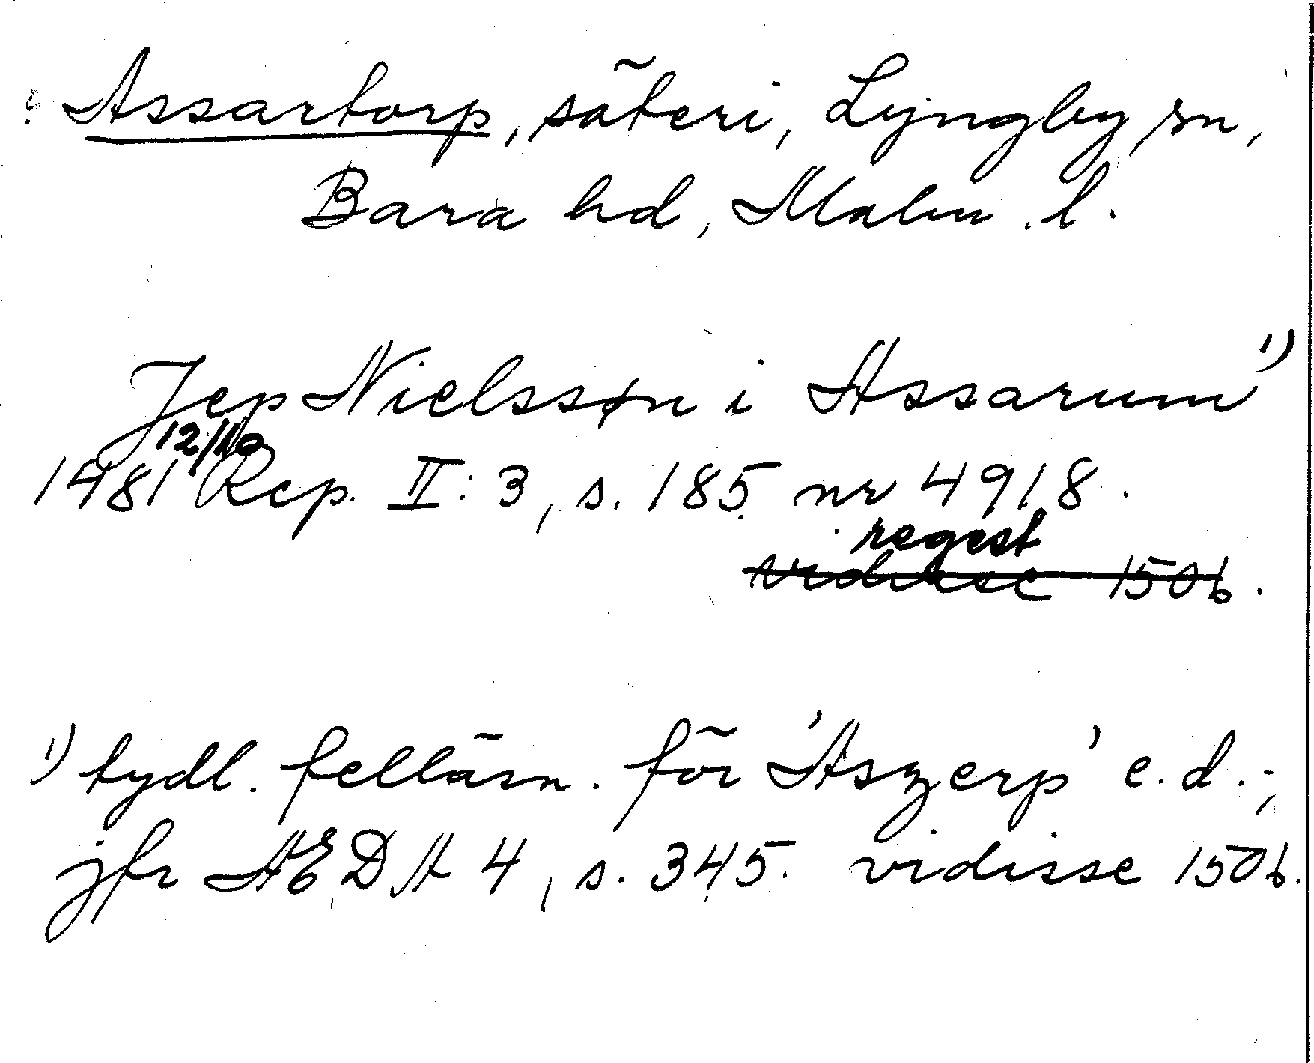 Assartorp, säteri, Lyngby sn,
Bara hd, Malm. l.
Jep Nielssøn i Assarum 1)
12/10
1481 Rep. II: 3, s. 185 nr 4918.
regest
vidisse 1506.
1) tydl. felläsn. för 'Aszerp' e.d.;
jfr AEDA 4, s. 345. vidisse 1506.